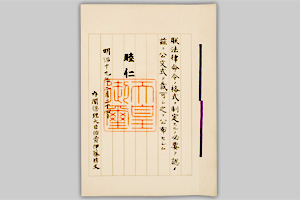 朕法律命令ノ格式ヲ制定スルノ必要ヲ認メ
茲ニ公文式ヲ裁可シ之ヲ公布セシム
睦仁
天皇御璽
明治十九年二月二十四日
内閣総理大臣伯爵伊藤博文